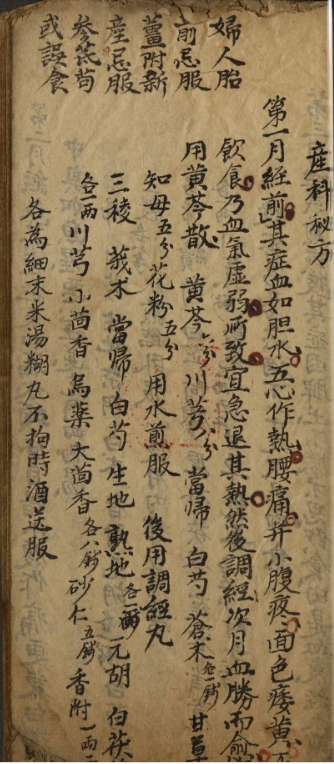 產科秘方
第一月經前其症血如胆水五心作熱腰痛并小腹夜面色痿黃不
飲食乃血氣虛弱所致宜急退其熱然後調經次月血勝而愈
用黃芩散 黃芩六分川芎八分當歸 白芍 蒼术各一錢 甘草
知母五分花粉五分 用水煎服 後用調經丸
三稜 莪术 當歸 白芍 生地 熟地各一兩 元胡 白茯
各一兩川芎 小茴香 烏藥 大茴香各八錢 砂仁五錢 香附一兩二
各為細末米湯糊丸不拘時酒送服
婦人胎
前忌服
薑附新
產忌服
參芪苟
或誤食